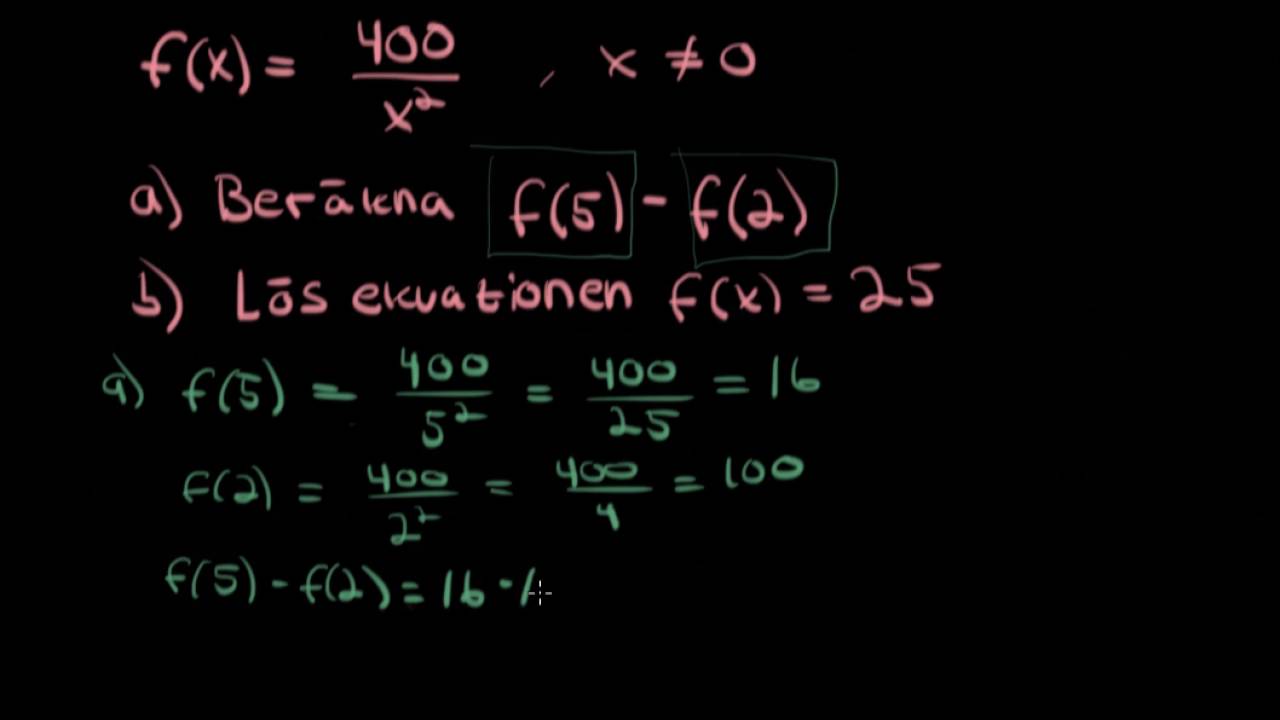 f(x) = 400/x² , x ≠ 0
a) Beräkna f(5) - f(2)
b) Lös ekvationen f(x) = 25
a) f(5) = 400/5² = 400/25 = 16
f(2) = 400/2² = 400/4 = 100
f(5) - f(2) = 16 - 1